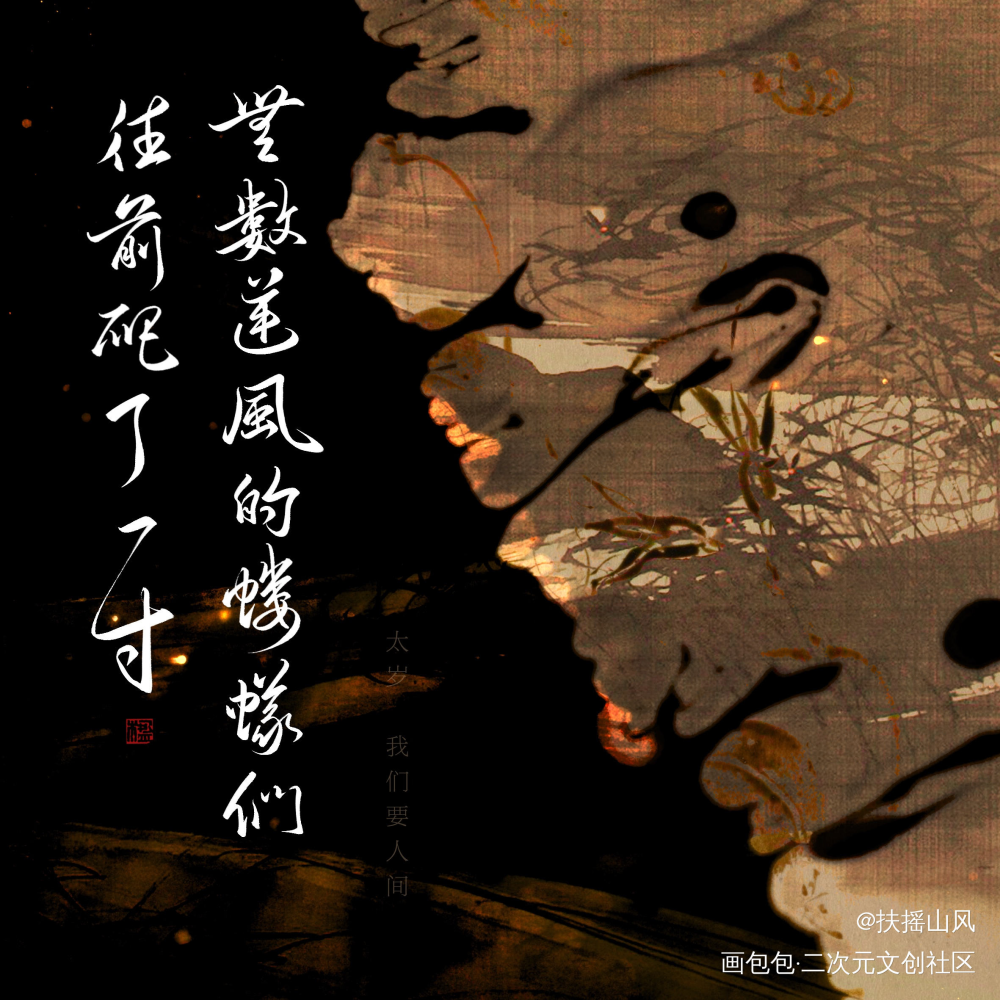 無數逆風的螻蟻們
往前爬了一寸
太岁 我们要人间
@扶摇山风
画包包·二次元文创社区